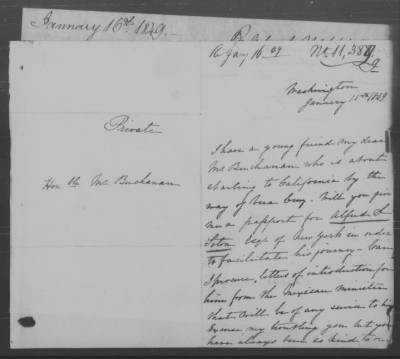 January 16th 1849.
R Jany 16 49 No 11,389
Washington
January 15th 1849
Private
Hon ble Mr Buchanan
I have a young friend my dear
Mr Buchanan who is about
starting to California by the
way of Vera Cruz. Will you give
me a passport for Alfred S
Seton Esqr of New York in order
to facilitate his journey. Can
I procure letters of introduction for
him from the Mexican minister
that will be of any service to him
Excuse my troubling you but you
have always been so kind to me